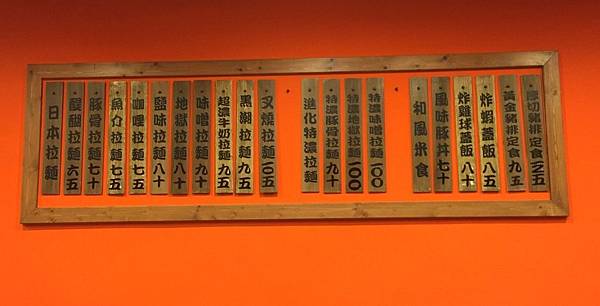 日本拉麵
醍醐拉麵六五
豚骨拉麵七十
魚介拉麵七五
咖哩拉麵七五
鹽味拉麵八十
地獄拉麵八十
味噌拉麵九十
超濃牛奶拉麵九五
黑潮拉麵九五
叉燒拉麵一０五
進化特濃拉麵
特濃豚骨拉麵九十
特濃地獄拉麵一００
特濃味噌拉麵一００
和風米食
風味豚丼七十
炸雞球蓋飯八十
炸蝦蓋飯八五
黃金豬排定食九五
厚切豬排定食一二五